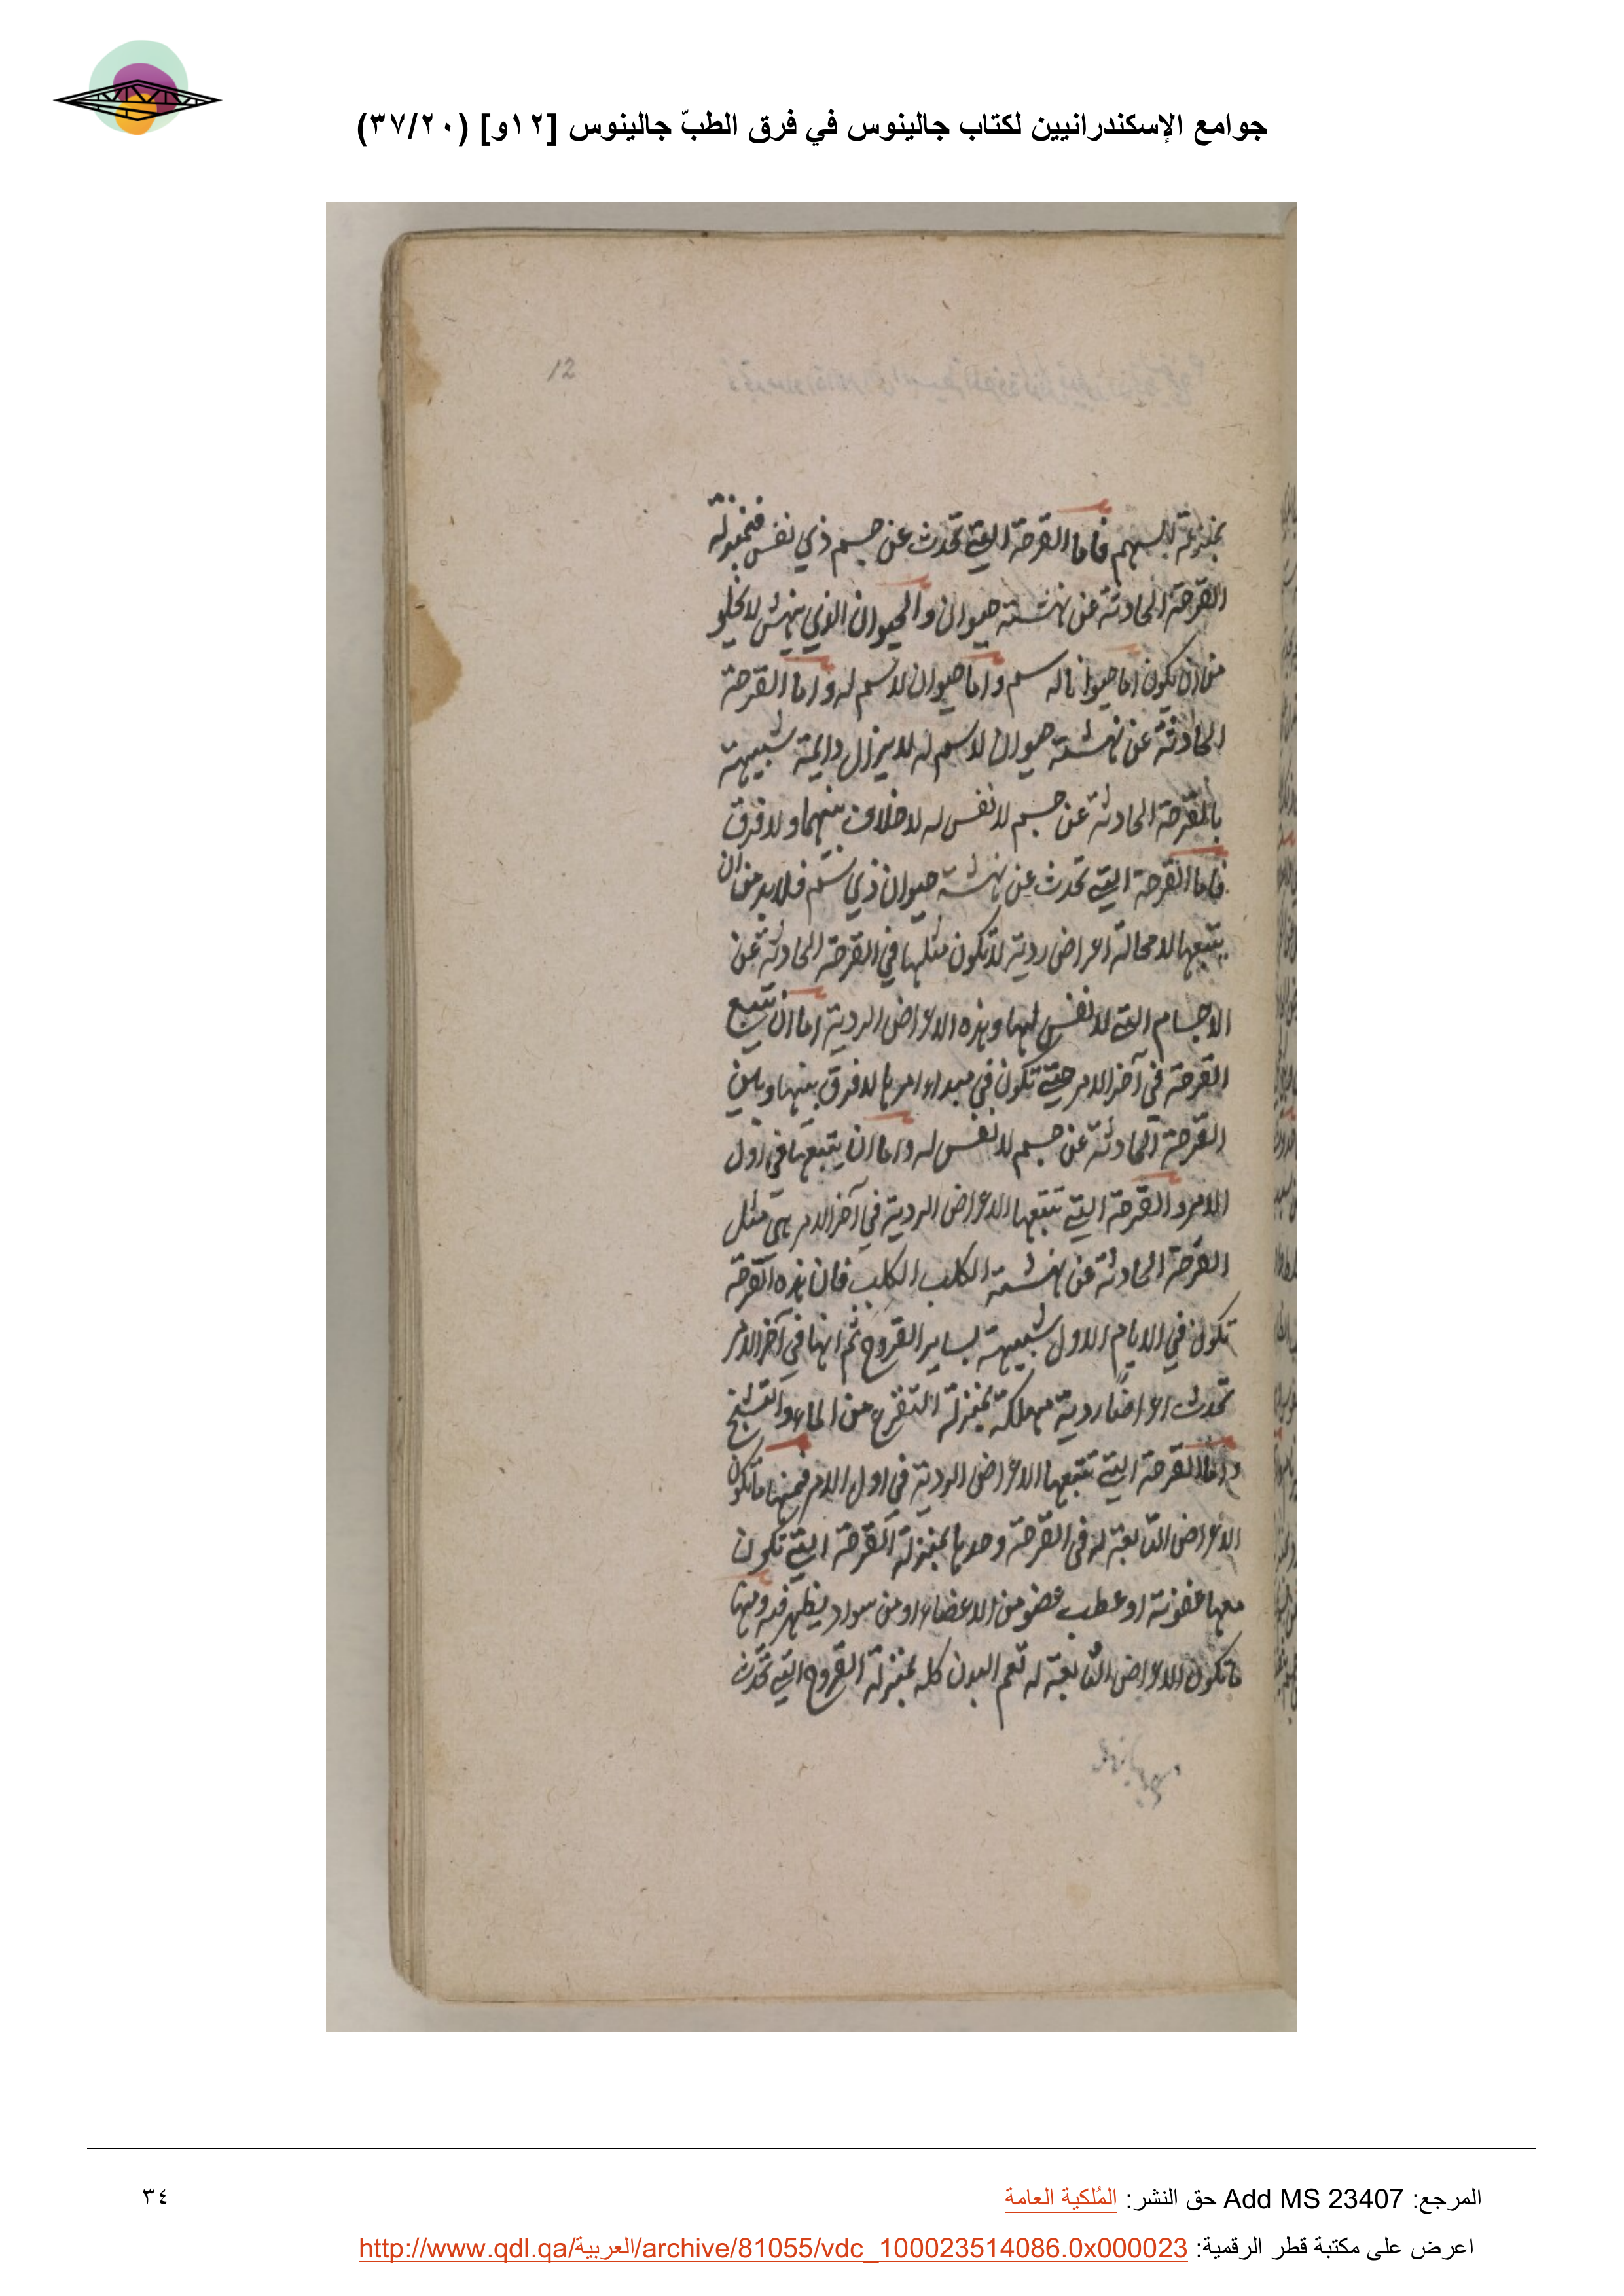 جوامع الإسكندرانيين لكتاب جالينوس في فرق الطبّ جالينوس [١٢و] (٣٧/٢٠)
12
بمنزلة السهم فاما القرحة التي تحدث عن جسم ذي نفس فبمنزلة
القرحة الحادثة عن نهشة حيوان والحيوان الذي ينهش لا يخلو
من ان يكون اما حيوانا له سم واما حيوان لا سم له واما القرحة
الحادثة عن نهشة حيوان لا سم له لا يزال دايمة شبيهة
بالقرحة الحادثة عن جسم لا نفس له لا خلاف بينهما ولا فرق
فاما القرحة التي تحدث عن نهشة حيوان ذي سم فلا بد من ان
يتبعها لا محالة اعراض ردية لا تكون مثلها في القرحة الحادثة عن
الاجسام التي لا نفس لها وهذه الاعراض الردية اما ان تتبع
القرحة في آخر الامر حتى تكون في مبداء امرها لا فرق بينها وبين
القرحة الحادثة عن جسم لا نفس له واما ان يتبعها في اول
الامر والقرحة التي تتبعها الاعراض الردية في آخر الامر هي مثل
القرحة الحادثة عن نهشة الكلب الكلب فان هذه القرحة
تكون في الايام الاول شبيهة بساير القروح ثم انها في آخر الامر
تحدث اعراضا ردية مهلكة بمنزلة التفزع من الماء والتشنج
واما القرحة التي تتبعها الاعراض الردية في اول الامر فمنها ما تكون
الاعراض التابعة له في القرحة وحدها بمنزلة القرحة التي تكون
معها عفونة او عطب عضو من الاعضاء او من سواد يظهر فيه ومنها
ما تكون الاعراض التابعة له تعم البدن كله بمنزلة القروح التي تحدث
المرجع: Add MS 23407 حق النشر: المُلكية العامة
٣٤
اعرض على مكتبة قطر الرقمية: http://www.qdl.qa/العربية/archive/81055/vdc_100023514086.0x000023